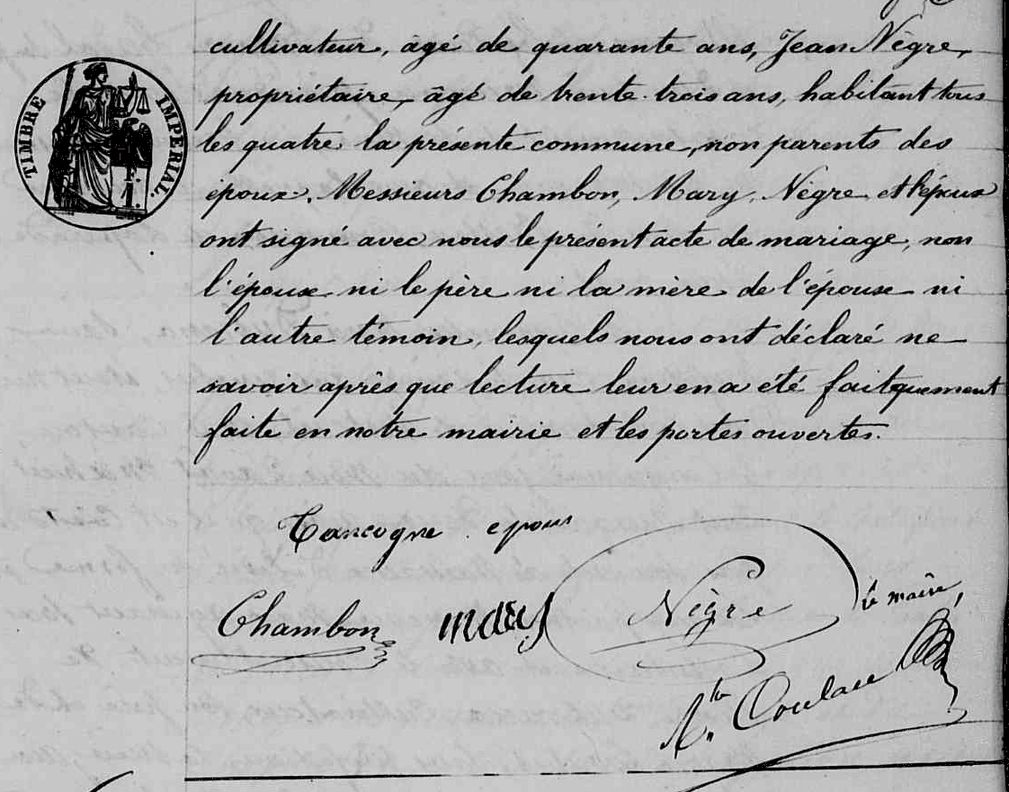 TIMBRE IMPÉRIAL.
cultivateur, âgé de quarante ans, Jean Nègre,
propriétaire, âgé de trente-trois ans, habitant tous
les quatre la présente commune, non parents des
époux. Messieurs Chambon, Mary, Nègre et l'époux
ont signé avec nous le présent acte de mariage, non
l'épouse ni le père ni la mère de l'épouse ni
l'autre témoin, lesquels nous ont déclaré ne
savoir après que lecture leur en a été
faite en notre mairie et les portes ouvertes.
Tancogne epoux
Chambon mary Nègre le maire,
Coulace